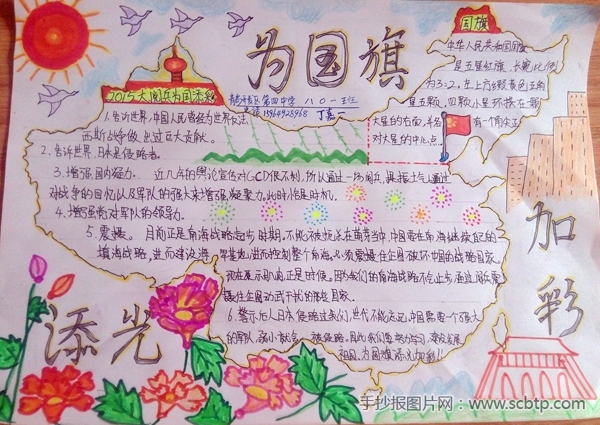 为国旗
国旗
中华人民共和国国旗
是五星红旗，长宽比例
为3:2，左上方缀黄色五角
星五颗，四颗小星环拱在大
大星的右面，并各有一个角尖正
对大星的中心点
2015大阅兵为国添彩
第四中学 八〇一班
丁嘉一
1.告诉世界，中国人民曾经为世界反法
西斯战争做出过巨大贡献。
2.告诉世界，日本是侵略者。
3.增强国内凝力。 近几年的舆论宣传对GCD很不利，所以通过一场阅兵，提振士气，通过
对战争的回忆以及军队的强大来增强凝聚力。此时恰是时机。
4.增强党对军队的领导力。
5.震慑。 目前正是南海战略起步时期，不能被扼杀在萌芽当中，中国要在南海继续
填海战略，进而建设海 进而控制整个南海。必须震慑住企图破坏中国的战略国家。
现在展示肌肉正是时候。因为我们的南海战略不会止步，通过阅兵震
慑住企图武力干扰的敌对国家。
6.警示后人日本侵略过我们，世代不能忘记，中国需要一个强大
的军队，弱小就会被侵略。因此我们要努力学习，建设发展
祖国，为国旗添光加彩！！
添光
加彩
手抄报图片网：www.scbtp.com